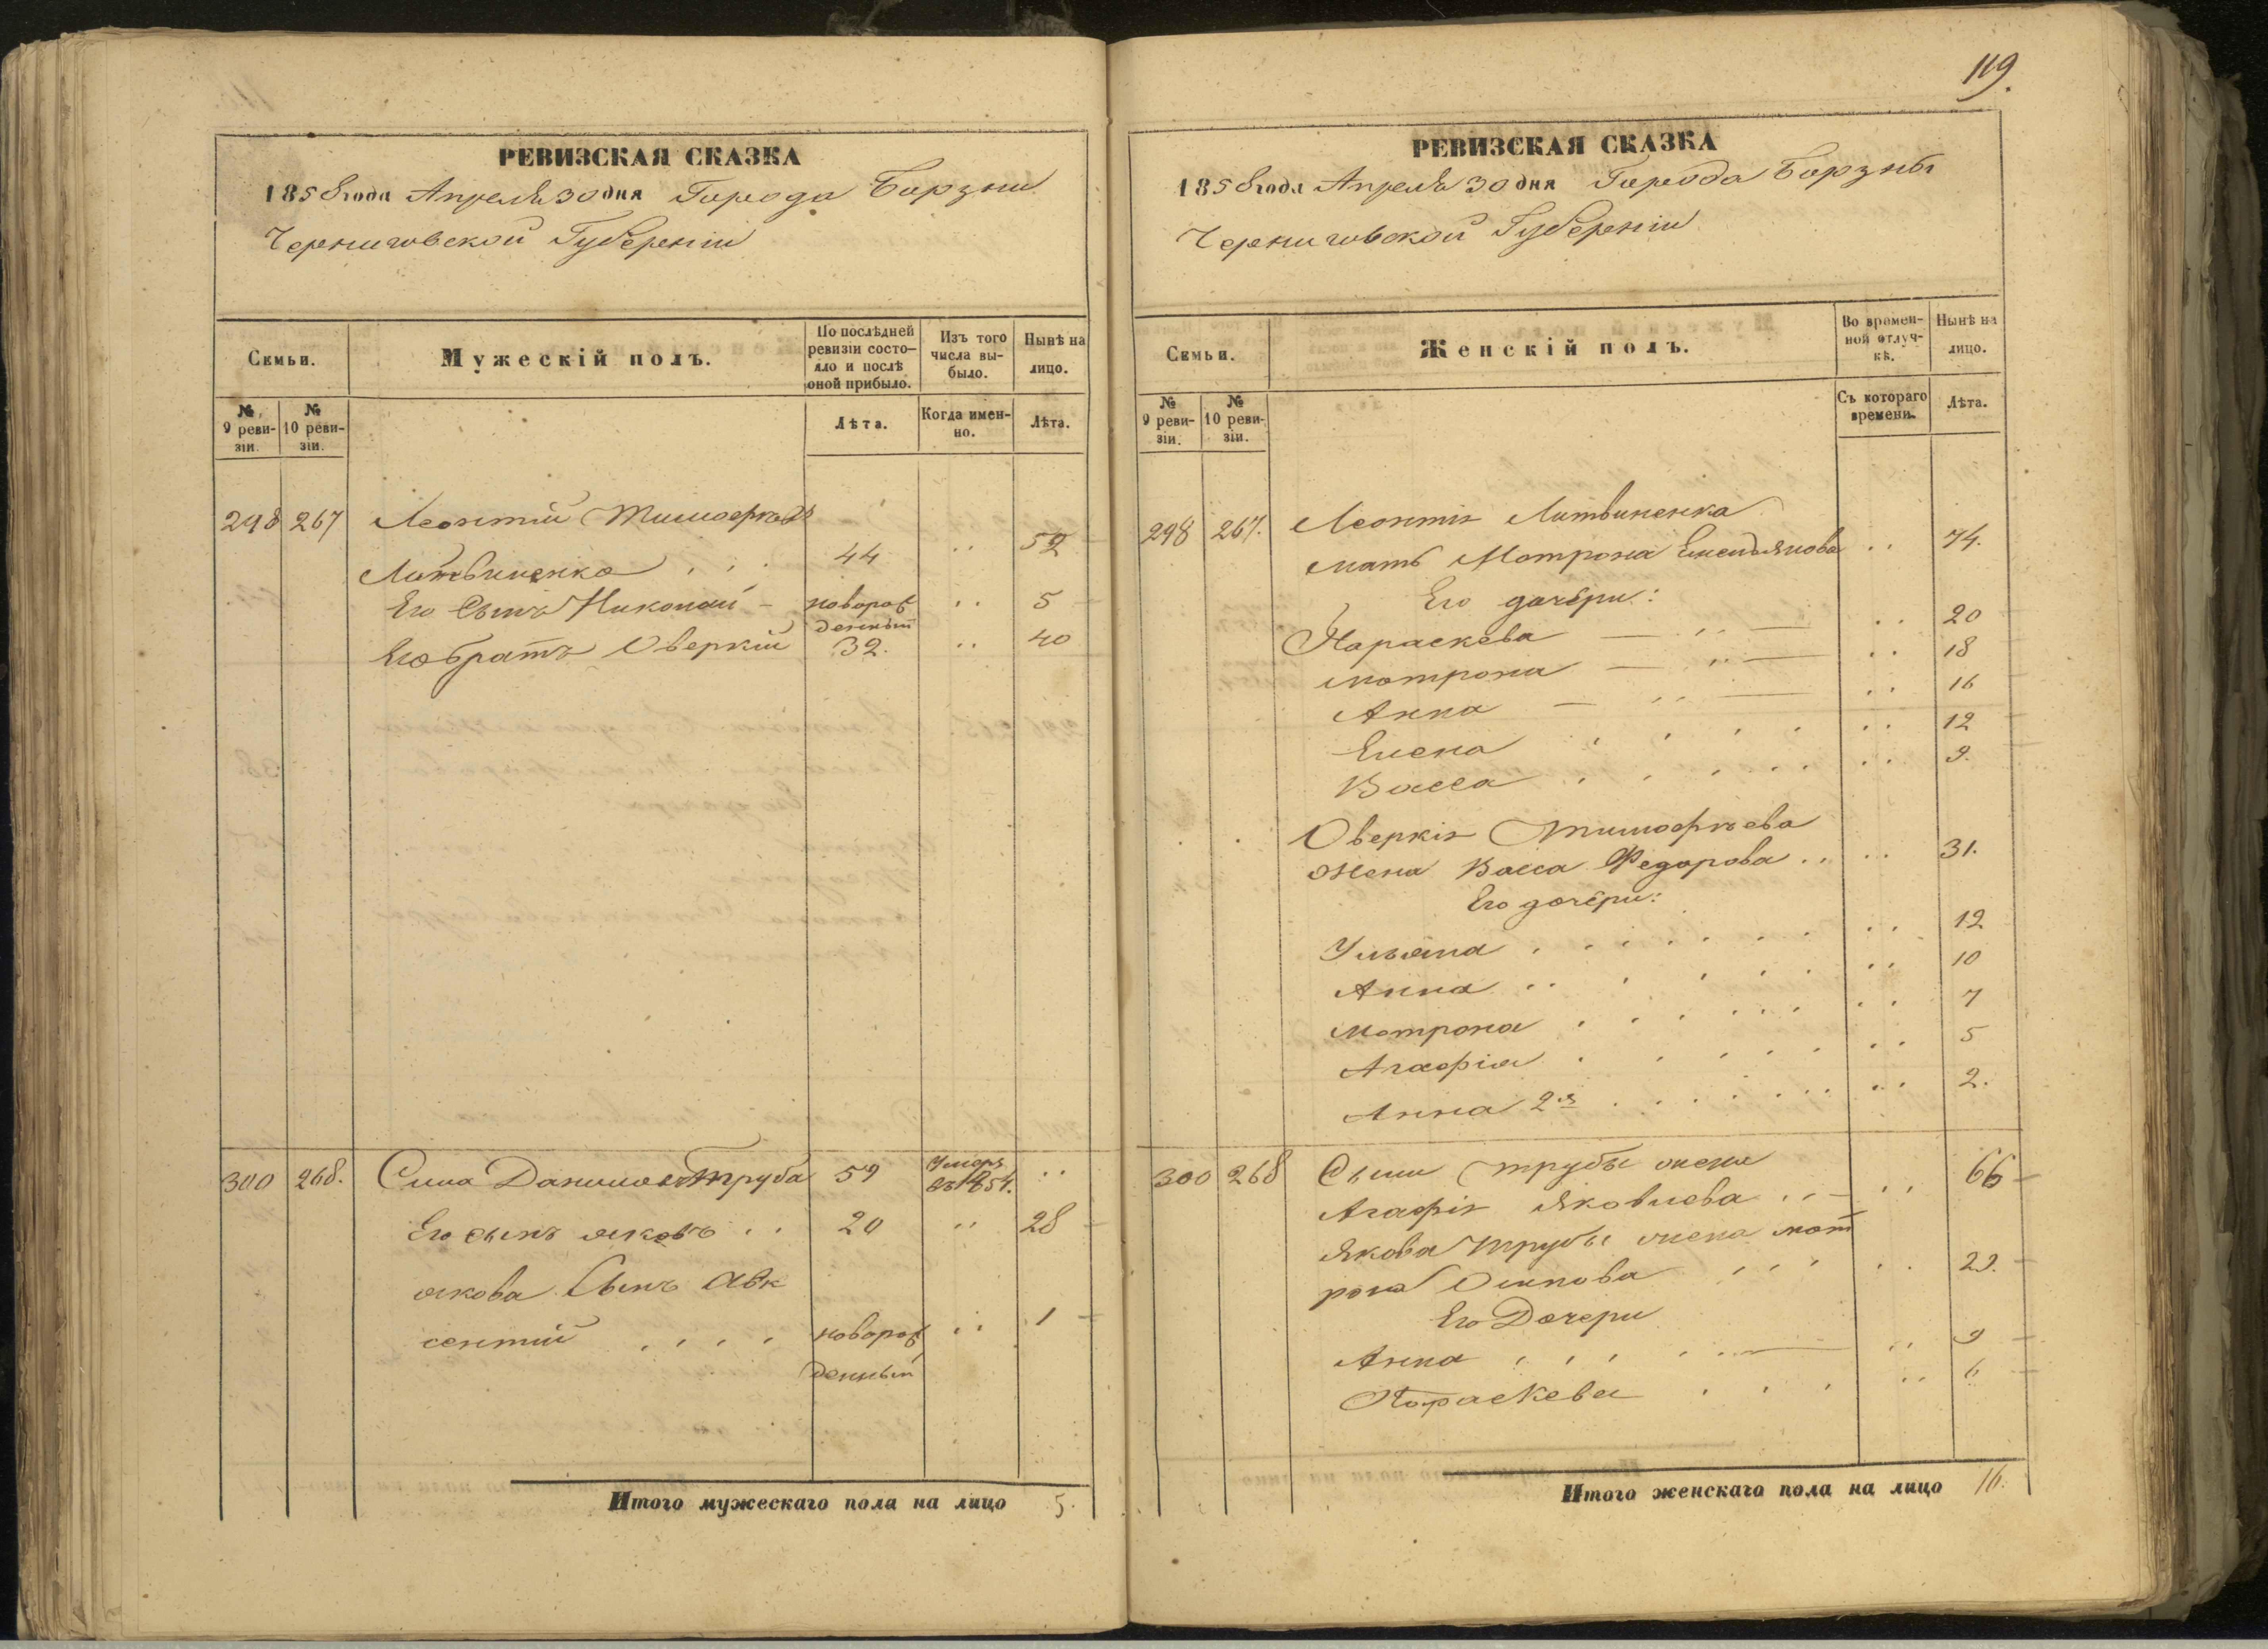 РЕВИЗСКАЯ СКАЗКА
1858 года Апреля 30 дня Города Борзни
Черниговской Губерніи
Семьи.
Мужескій полъ.
По послѣдней ревизіи состояло и послѣ оной прибыло.
Изъ того числа выбыло.
Нынѣ на лицо.
№ 9 ревизіи.
№ 10 ревизіи.
Лѣта.
Когда именно.
Лѣта.
298 267 Леонтій Тимофѣевъ
Литвиненко . . . 44 .. 52
Его Сынъ Николай - новорожденный .. 5
Его братъ Оверкій 32. .. 40
300 268. Сила Даниловъ Труба 59 Умеръ въ 1854. ..
Его сынъ яковъ . . 20 .. 28
якова Сынъ Авк
сентій . . . . новорожденный .. 1
Итого мужескаго пола на лицо 5.
119.
РЕВИЗСКАЯ СКАЗКА
1858 года Апреля 30 дня Города Борзны
Черниговской Губерніи
Семьи.
Женскій полъ.
Во временной отлучкѣ.
Нынѣ на лицо.
№ 9 ревизіи.
№ 10 ревизіи.
Съ котораго времени.
Лѣта.
298 267. Леонтія Литвиненка
мать Мотрона Емельянова .. 74.
Его дочери:
Параскева .. 20
Мотрона .. 18
Анна .. 16
Елена .. 12
Васса .. 9.
Оверкія Тимофѣева
жена Васса Федорова .. 31.
Его дочери:
Ульяна .. 12
Анна .. 10
Мотрона .. 7
Агафія .. 5
Анна 2я .. 2.
300 268 Силы Трубы жена
Агафія Яковлева .. 66
Якова Трубы жена мот
рона Осипова .. 29.
Его Дочери
Анна .. 9
Параскева .. 6
Итого женскаго пола на лицо 16.